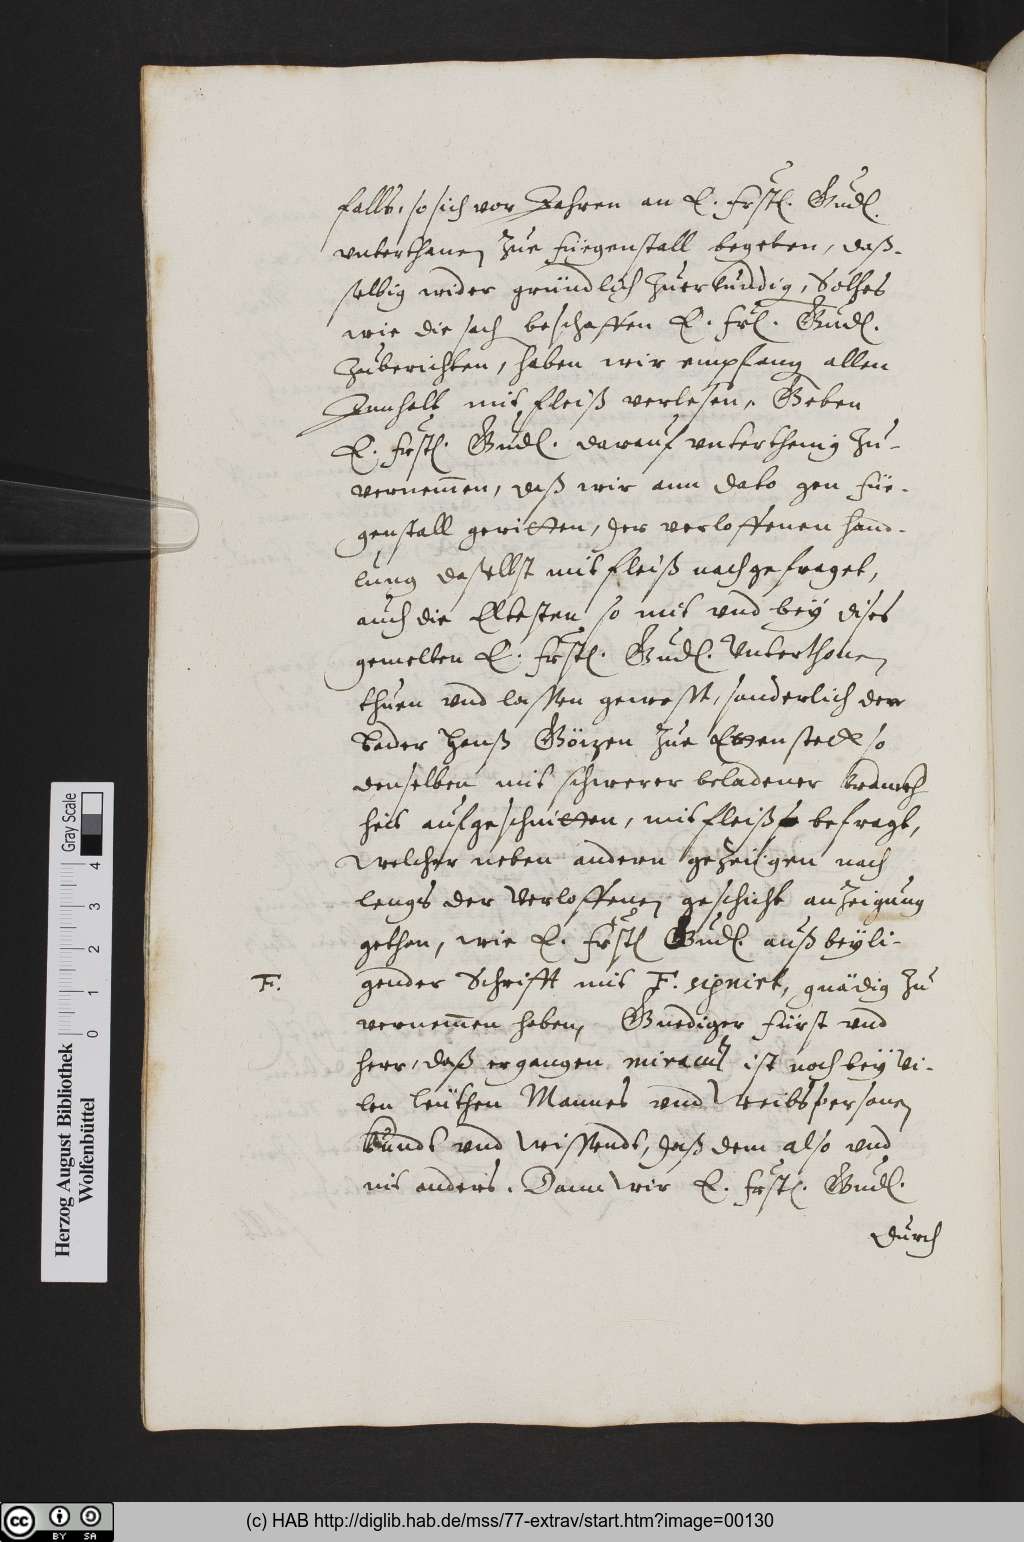 falls, so sich vor Jahren an E. Frstl. Gndl.
vnterthanen zue Füegenstall begeben, daß-
selbig wider gründlich zuerkundig, Solches
wie die sach beschaffen E. Frl. Gndl.
zuberichten, haben wir empfang allen
Innhalt mit fleiß verlesen, Geben
E. Frstl. Gndl. darauf vnterthenig zu-
vernemen, daß wir ann dato gen Füe-
genstall geritten, der verloffenen hand-
lung daselbst mit fleiß nachgefraget,
auch die Eltesten so mit vnd bey dises
gemelten E. Frstl. Gndl. Vnterthonen
thuen vnd lassen gewest, sonderlich den
Bader Hanß Götzen zue Ettenstett so
denselben mit schwerer beladener kranckh
heit aufgeschnitten, mit fleiß befragt,
welcher neben andern gezeügen nach
lengs der Verloffenen geschicht anzeigung
gethon, wie E. Frstl Gndl. auß beyli-
F. gender Schrifft mit F. signirt, gnädig zu
vernemen haben, Gnediger Fürst vnd
herr, daß ergangen miracul ist noch bey Vi-
len leüthen Mannes vnd Weibspersonen
kundt vnd Wissendt, daß dem also vnd
nit anders. Dann Wir E. Frstl. Gndl.
Durch
Gray Scale
4 3 2 1 0
Herzog August Bibliothek
Wolfenbüttel
cc BY SA
(c) HAB http://diglib.hab.de/mss/77-extrav/start.htm?image=00130